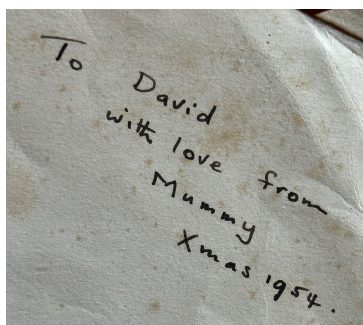 To David
with love from
Mummy
Xmas 1954.